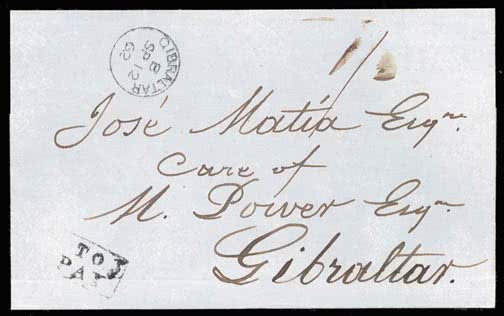 GIBRALTAR
B
SP 12
62
1/
José Matía Esqre.
Care of
M. Power Esqr.
Gibraltar.
TO
PAY